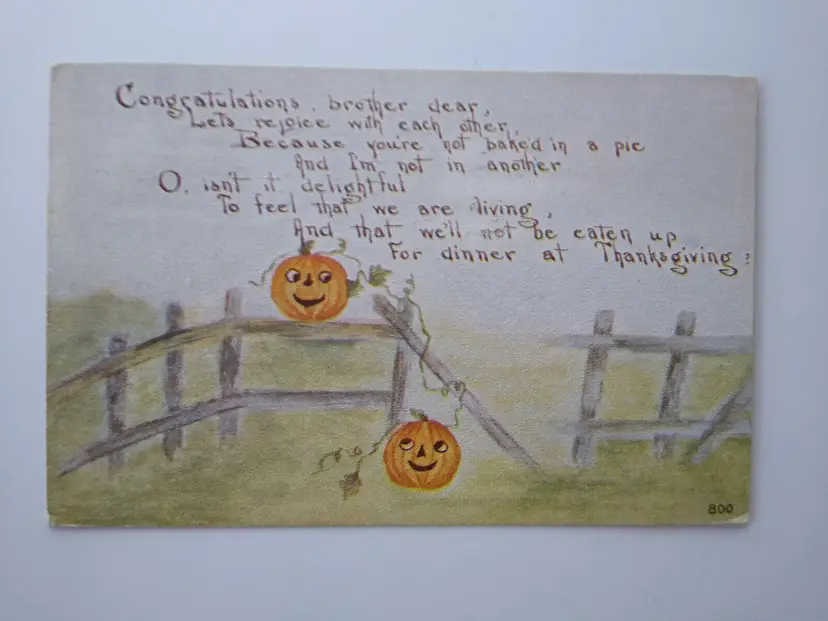 Congratulations, brother dear,
Lets rejoice with each other,
Because you're not baked in a pie
And I'm not in another
O, isn't it delightful
To feel that we are living,
And that we'll not be eaten up
For dinner at Thanksgiving?
800